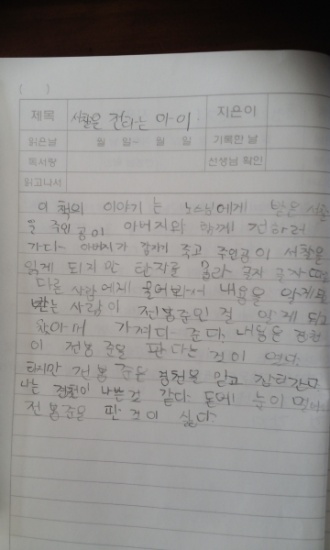 ( )
제목 서찰을 전하는 아이. 지은이
읽은날 월 일~ 월 일 기록한 날
독서량 선생님 확인
읽고나서
이 책의 이야기는 노스님에게 받은 서찰
을 주인공이 아버지와 함께 전하러
가다 아버지가 갑자기 죽고 주인공이 서찰을
읽게 되지만 한자를 몰라 글자 글자
다른 사람에게 물어봐서 내용을 알게되
받는 사람이 전봉준인 걸 알게 되고
찾아가 가져다 준다. 내용은 경천
이 전봉준을 판다는 것이 였다.
하지만 전봉준은 경천을 믿고 갔다간다
나는 경천이 나쁜것 같다. 돈에 눈이 멀어
전봉준을 판 것이 싫다.